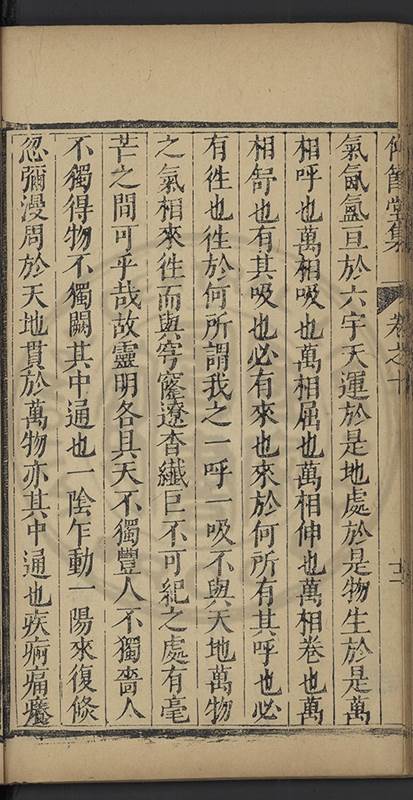 仰節堂集 卷之十 十二
氣氤氳亘於六宇天運於是地處於是物生於是萬
相呼也萬相吸也萬相屈也萬相伸也萬相卷也萬
相舒也有其吸也必有來也來於何所有其呼也必
有徃也徃於何所謂我之一呼一吸不與天地萬物
之氣相來徃而與穹窿遼杳纎巨不可紀之處有毫
芒之間可乎哉故靈明各具天不獨豐人不獨嗇人
不獨得物不獨闕其中通也一陰乍動一陽來復倐
忽彌漫周於天地貫於萬物亦其中通也疾病痛癢